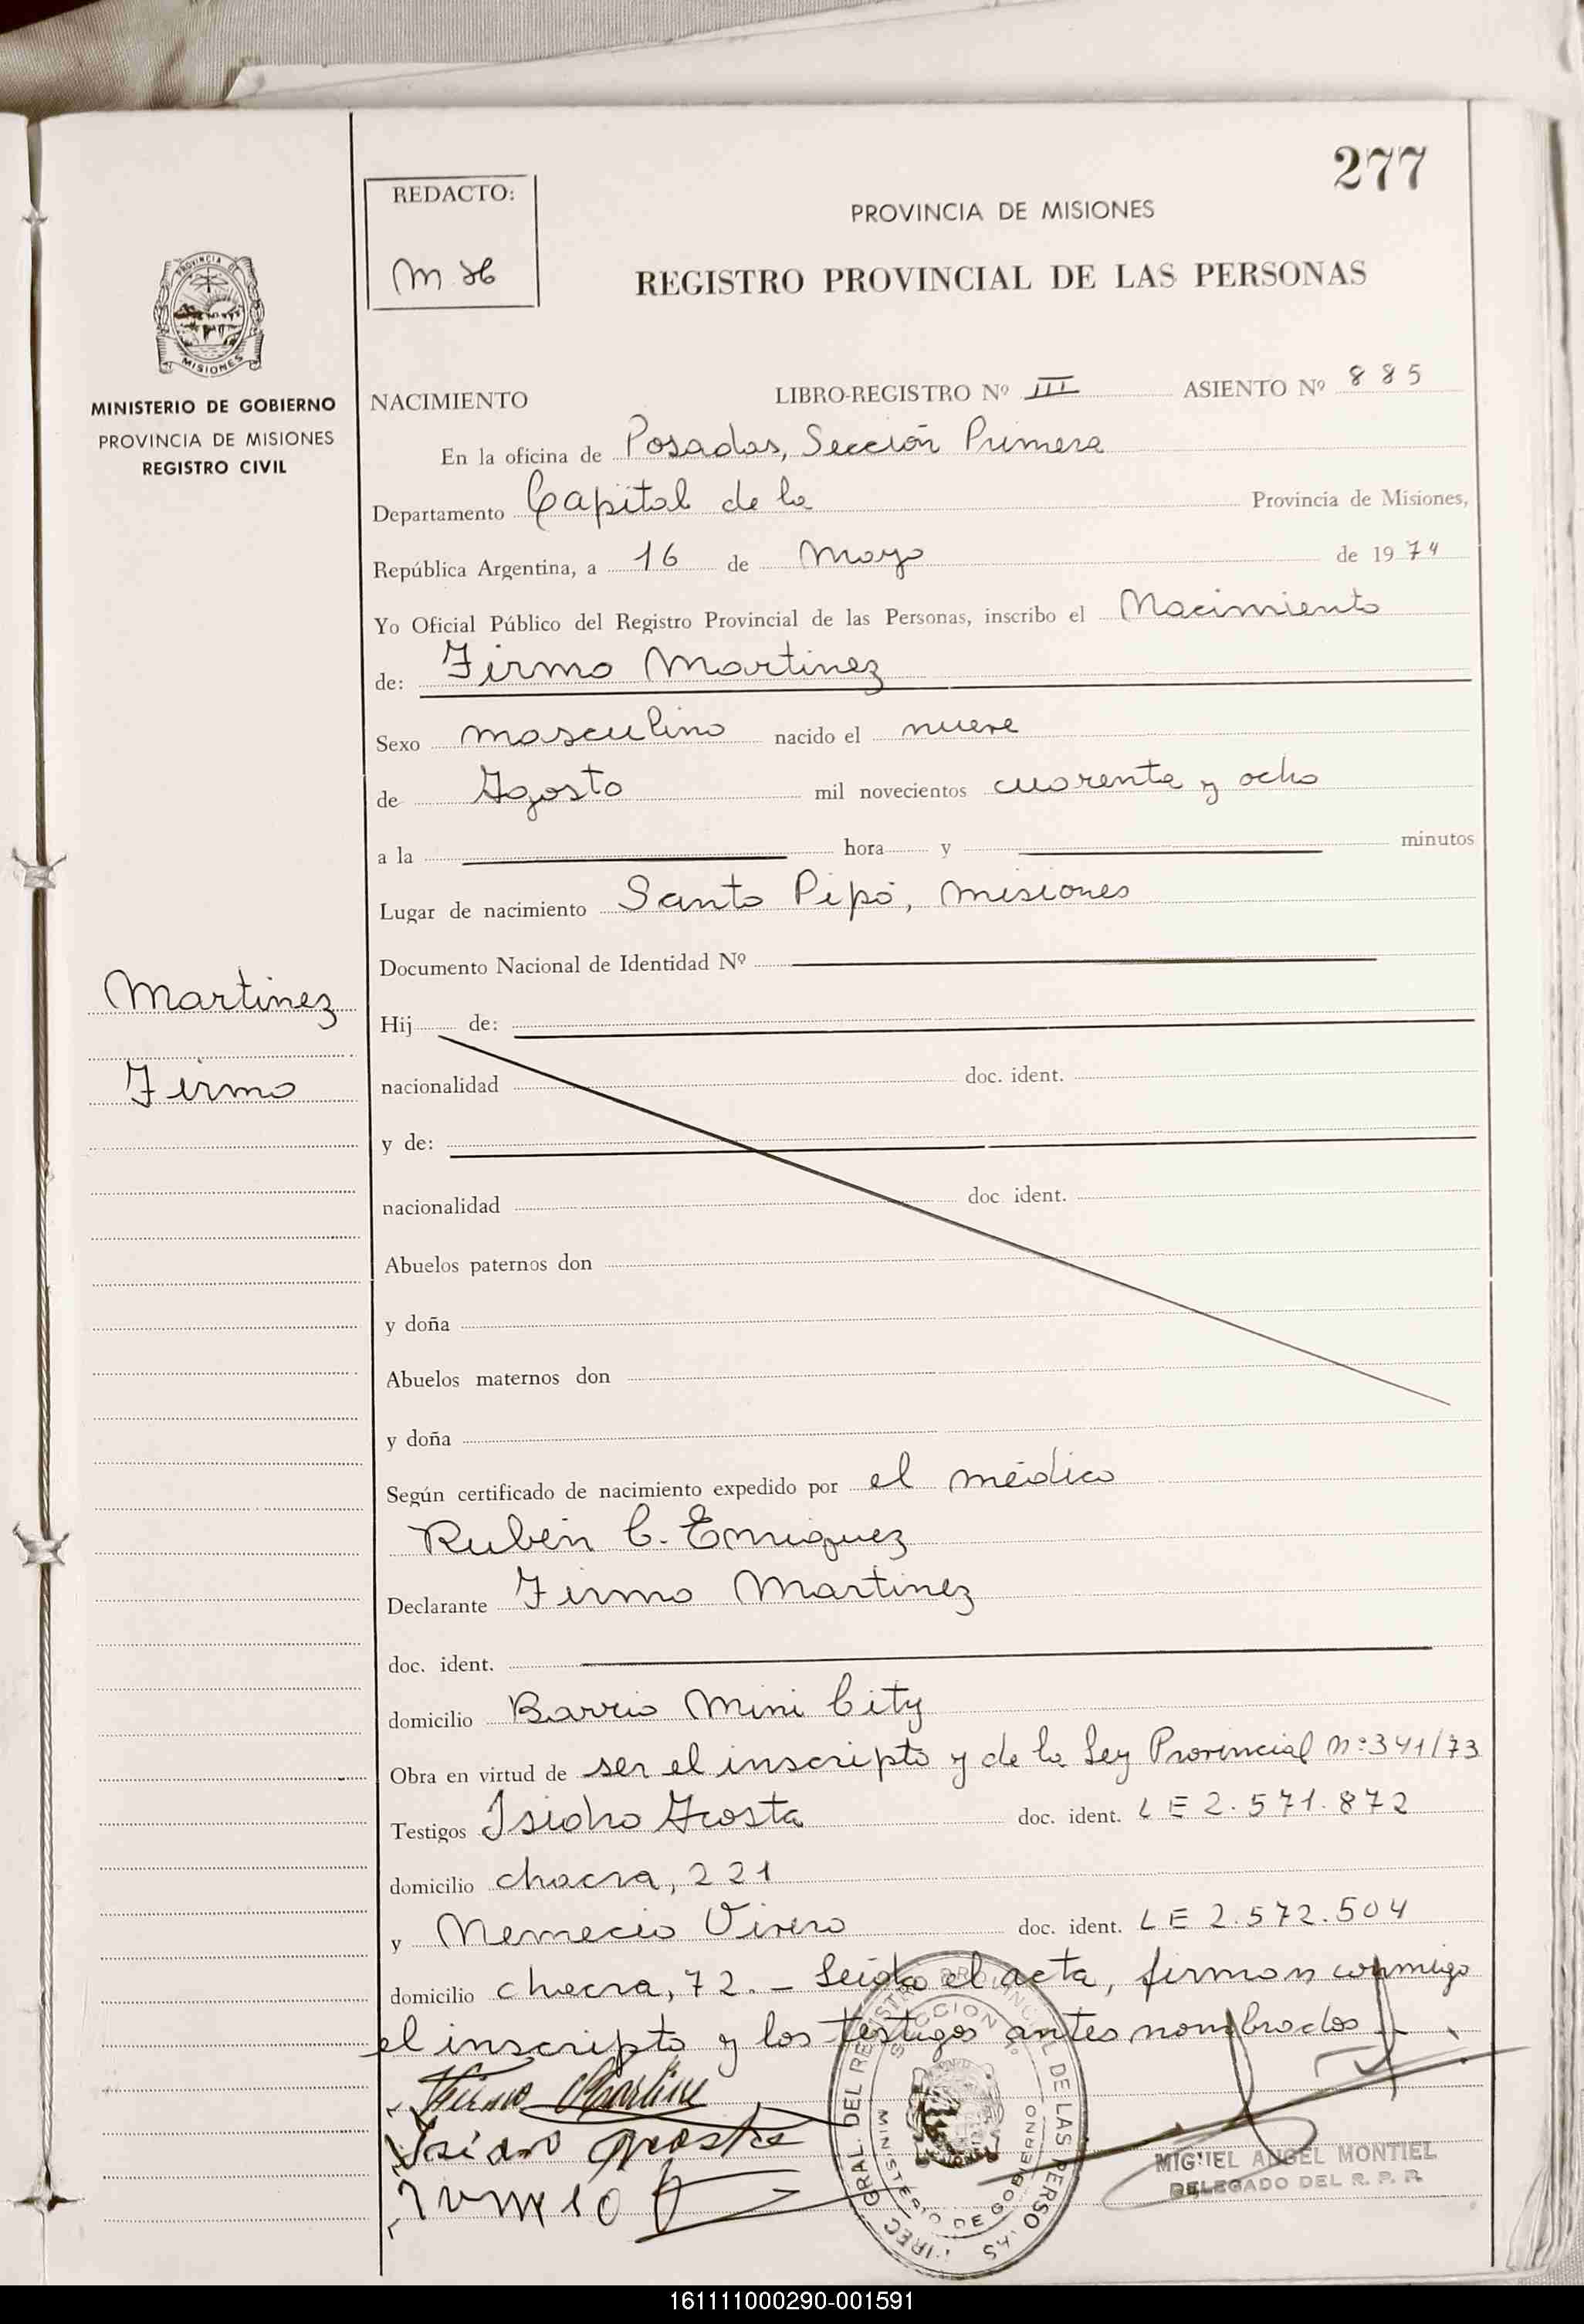 277
REDACTO:
PROVINCIA DE MISIONES
REGISTRO PROVINCIAL DE LAS PERSONAS
PROVINCIA DE
MISIONES
MINISTERIO DE GOBIERNO
PROVINCIA DE MISIONES
REGISTRO CIVIL
NACIMIENTO LIBRO-REGISTRO Nº III ASIENTO Nº 885
En la oficina de Posadas, Sección Primera
Departamento Capital de la Provincia de Misiones,
República Argentina, a 16 de Mayo de 1974
Yo Oficial Público del Registro Provincial de las Personas, inscribo el Nacimiento
de: Firmo Martinez
Sexo masculino nacido el nueve
de Agosto mil novecientos cuarenta y ocho
a la hora y minutos
Lugar de nacimiento Santo Pipó, Misiones
Documento Nacional de Identidad Nº
Martinez
Firmo
Hij de:
nacionalidad doc. ident.
y de:
nacionalidad doc. ident.
Abuelos paternos don
y doña
Abuelos maternos don
y doña
Según certificado de nacimiento expedido por el médico
Rubén C. Enriquez
Declarante Firmo Martinez
doc. ident.
domicilio Barrio Mini City
Obra en virtud de ser el inscripto y de la Ley Provincial nº 341/73
Testigos Isidro Acosta doc. ident. LE 2.571.872
domicilio chacra, 221
y Nemecio Vivero doc. ident. LE 2.572.504
domicilio chacra, 72. - Leida el acta, firman conmigo
el inscripto y los testigos antes nombrados
Firmo Martine
Isidro Acosta
MIGUEL ANGEL MONTIEL
DELEGADO DEL R. P. P.
DIREC. GRAL. DEL REGISTRO PROVINCIAL DE LAS PERSONAS
SECCION 1º
MINISTERIO DE GOBIERNO
161111000290-001591